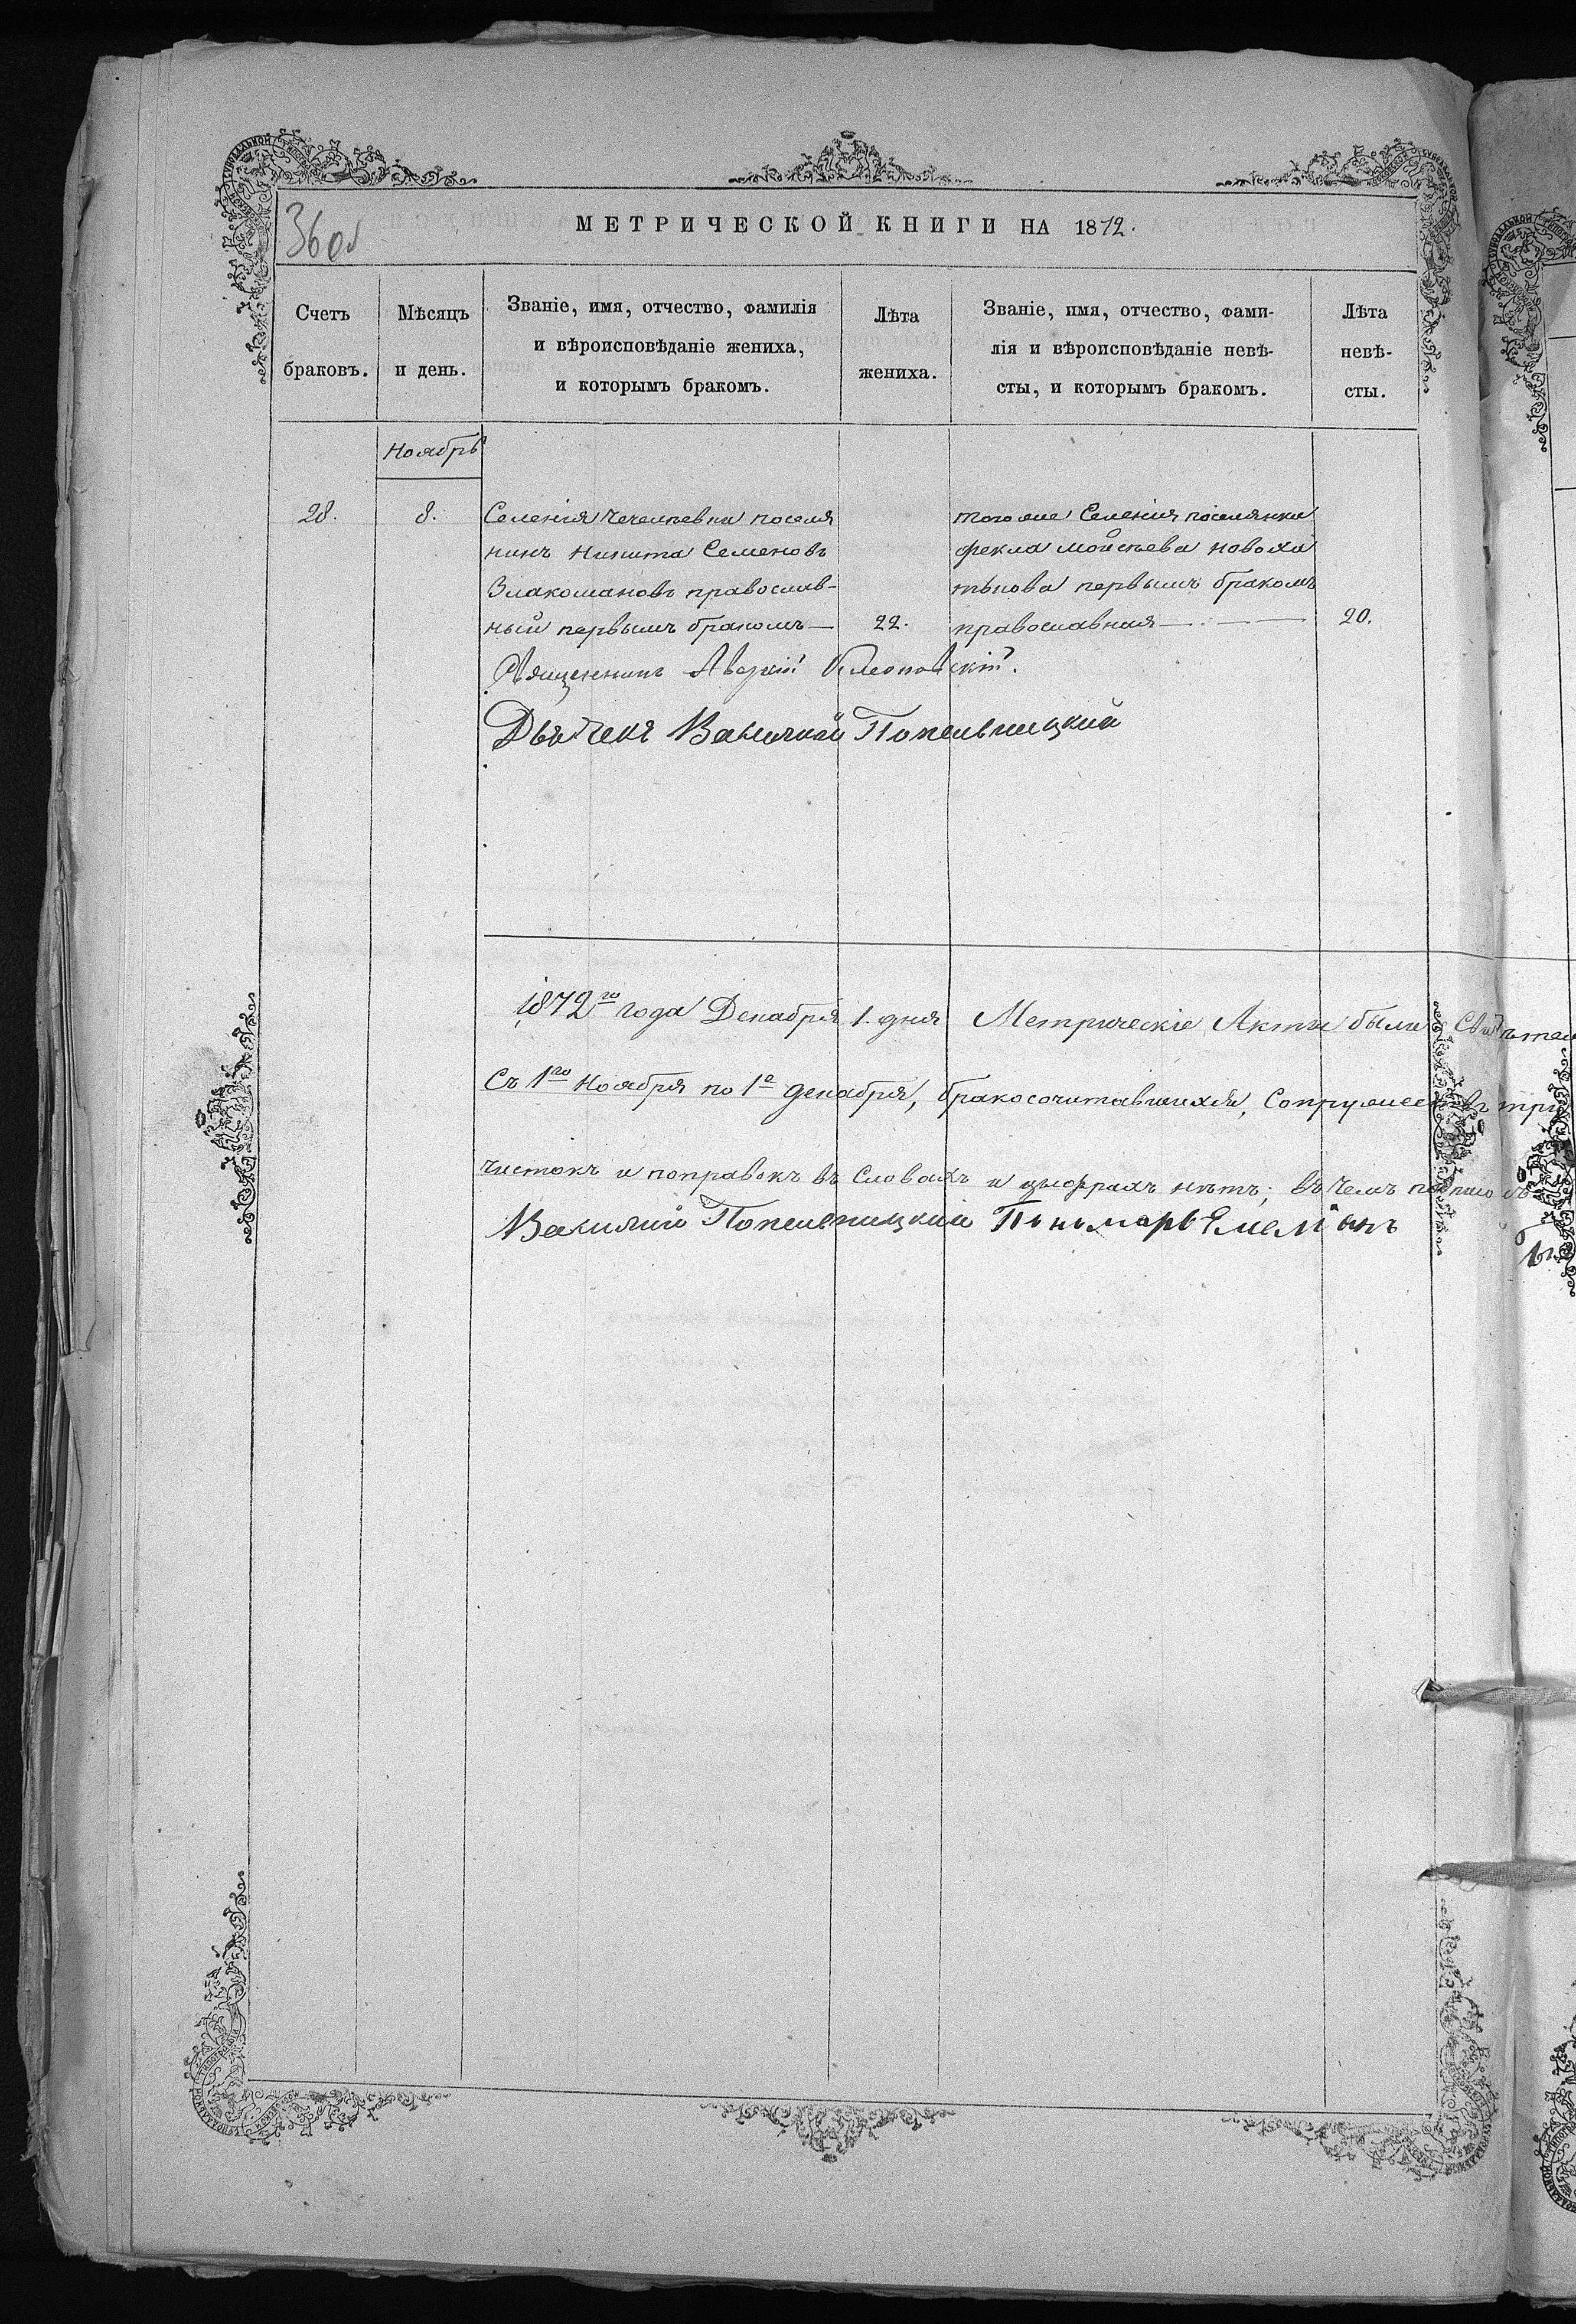 360б
МЕТРИЧЕСКОЙ КНИГИ НА 1872.
Счетъ браковъ.
Мѣсяцъ и день.
Званіе, имя, отчество, фамилія
и вѣроисповѣданіе жениха,
и которымъ бракомъ.
Лѣта жениха.
Званіе, имя, отчество, фами-
лія и вѣроисповѣданіе невѣ-
сты, и которымъ бракомъ.
Лѣта невѣ-
сты.
Ноябрь
28. 8. Селенія поселя тогоже Селенія поселянка
нинъ Никита Семеновъ Фекла Мойсеева Новоха
православ- тькова первымъ бракомъ
ный первымъ бракомъ — 22. православная — 20.
Священникъ Аверкій
Дьячекъ Василій Попельницкій
1872го года Декабря 1. дня Метрическіе Акты были
Съ 1го Ноября по 1е декабря, бракосочитавшихся, въ три
чистокъ и поправокъ въ Словахъ и цыфрахъ нѣтъ; въ Чемъ
Василий Попельницкій Пономарь Емеліянъ